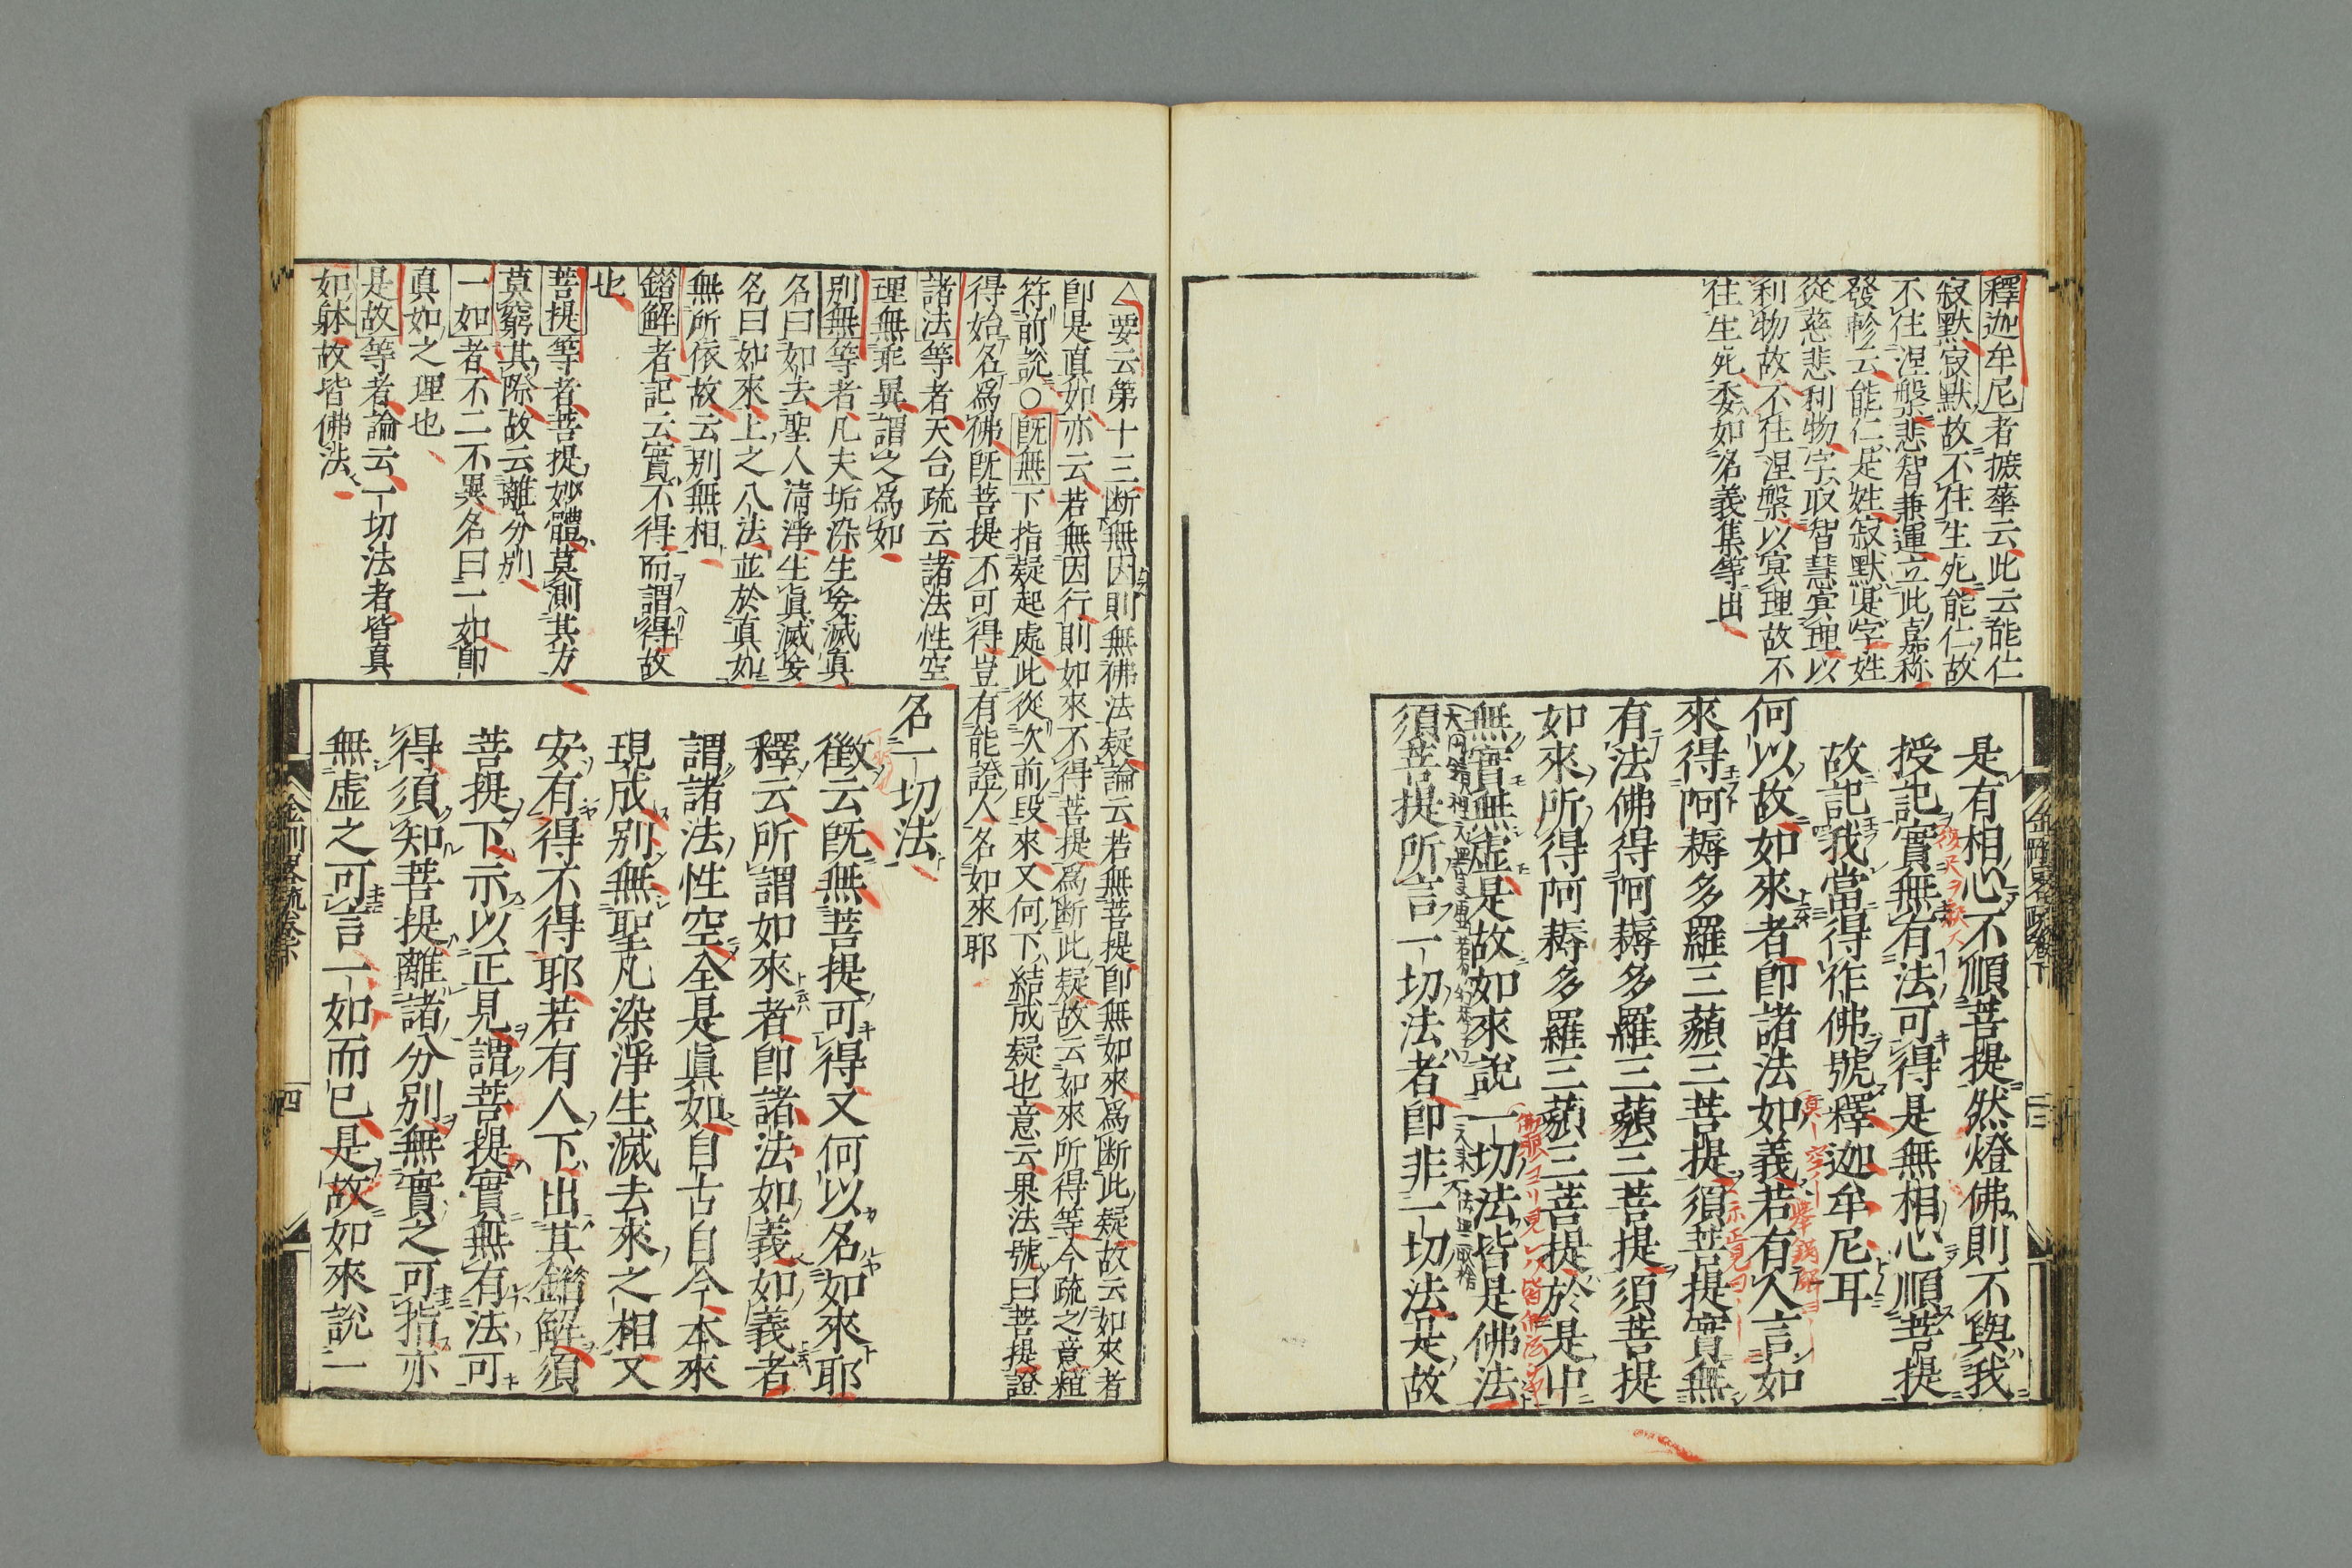 釋迦牟尼者摭華云此云能仁
寂默寂默故不住生死能仁故
不住涅槃悲智兼運立此嘉称
發軫云能仁是姓寂默是字姓
從慈悲利物字取智慧冥理以
利物故不住涅槃以冥理故不
住生死委如名義集等出
是有相心不順菩提然燈佛則不與我
授記實無有法可得是無相心順菩提
故記我當得作佛號釋迦牟尼耳
何以故如來者即諸法如義若有人言如
來得阿耨多羅三藐三菩提須菩提實無
有法佛得阿耨多羅三藐三菩提須菩提
如來所得阿耨多羅三藐三菩提於是中
無實無虛是故如來說一切法皆是佛法
須菩提所言一切法者即非一切法是故
△要云第十三断無因則無佛法疑論云若無菩提即無如來爲断此疑故云如來者
即是真如亦云若無因行則如來不得菩提爲断此疑故云如來所得等今疏之意粗
符前說○既無下指疑起處此從次前段來又何下結成疑也意云果法號曰菩提證
得始名爲佛既菩提不可得豈有能證人名如來耶
諸法等者天台疏云諸法性空
理無乖異謂之爲如
別無等者凡夫垢染生妄滅真
名曰如去聖人清淨生眞滅妄
名曰如來上之八法並於真如
無所依故云別無相
錯解者記云實不得而謂得故
也
菩提等者菩提妙體莫測其方
莫窮其際故云離分別
一如者不二不異名曰一如即
真如之理也
是故等者論云一切法者皆真
如躰故皆佛法
名一切法
徵云既無菩提可得又何以名如來耶
釋云所謂如來者即諸法如義如義者
謂諸法性空全是眞如自古自今本來
現成別無聖凡染淨生滅去來之相又
安有得不得耶若有人下出其錯解須
菩提下示以正見謂菩提實無有法可
得須知菩提離諸分別無實之可指亦
無虛之可言一如而已是故如來說一
四